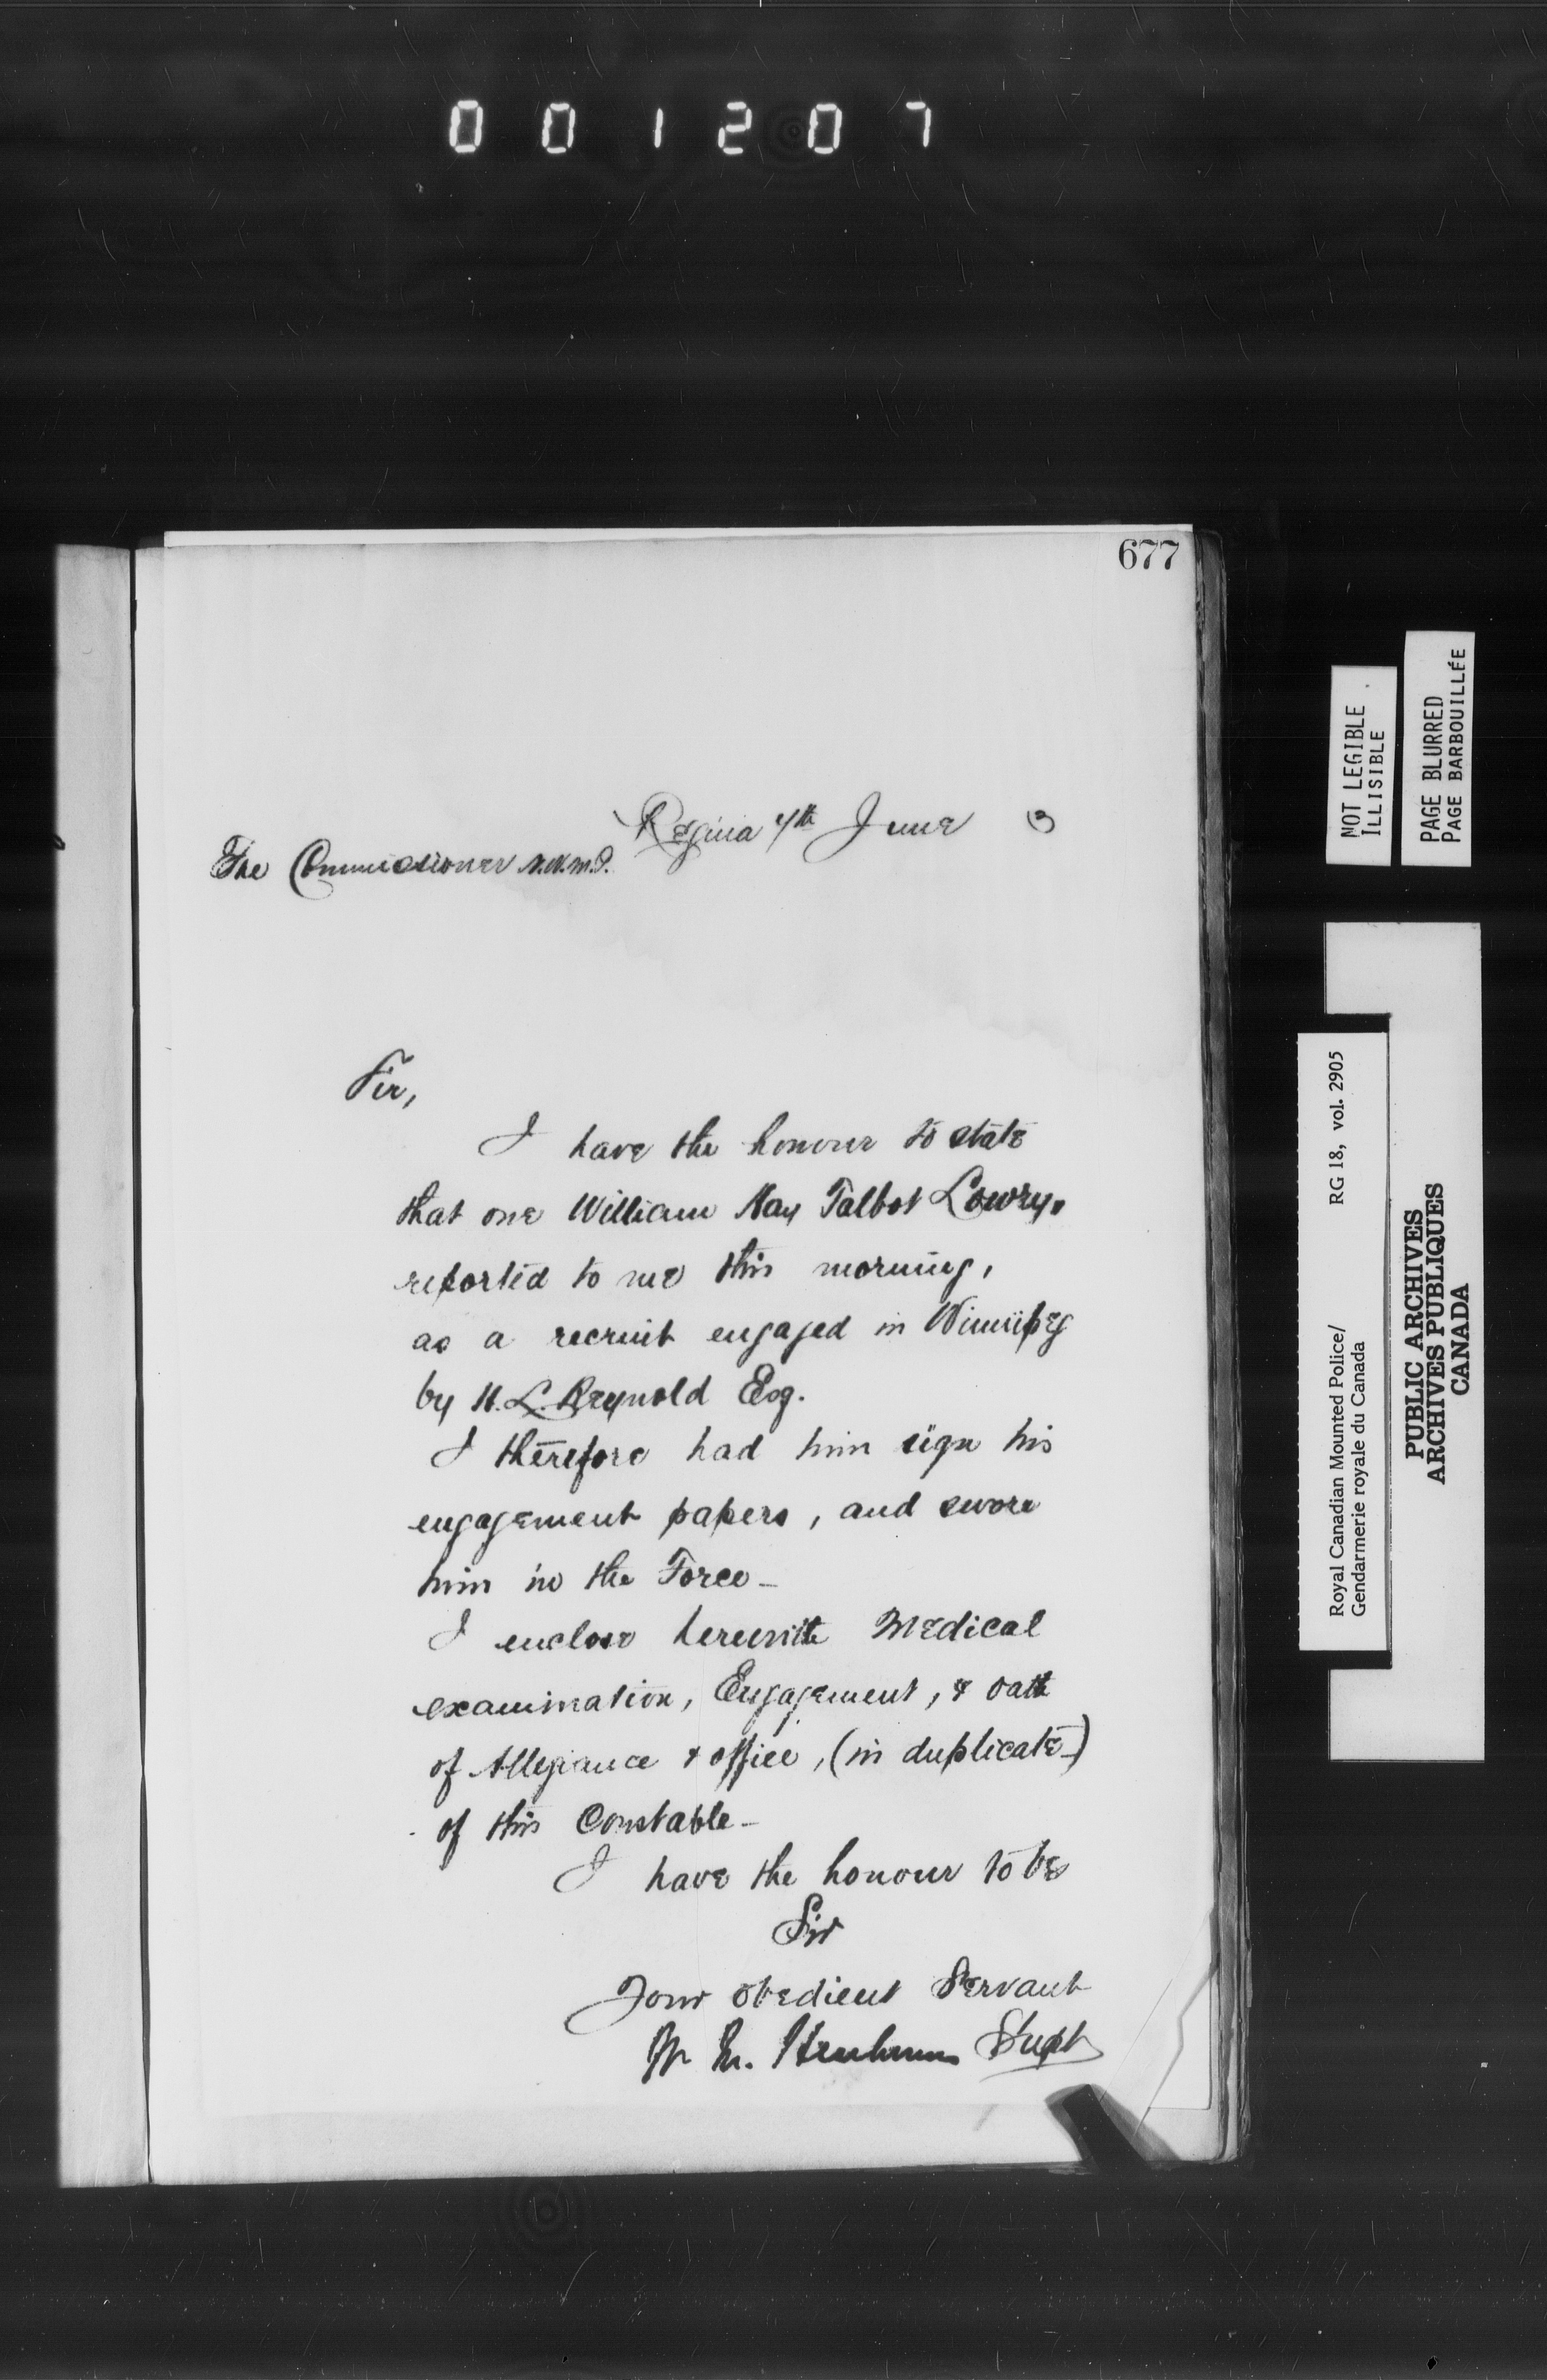 001207
677
Regina 4th June 3
The Commissioner N.W.M.P.
Sir,
I have the honour to state
that one William Hay Talbot Lowry,
reported to me this morning,
as a recruit engaged in Winnipeg
by H. L. Reynold Esq.
I therefore had him sign his
engagement papers, and swore
him in the Force -
I enclose herewith Medical
examination, Engagement, & oath
of Allegiance & office, (in duplicate)
of this Constable -
I have the honour to be
Sir
Your obedient Servant
W. M. Herchmer Supt
NOT LEGIBLE
ILLISIBLE
PAGE BLURRED
PAGE BARBOUILLÉE
RG 18, vol. 2905
Royal Canadian Mounted Police/
Gendarmerie royale du Canada
PUBLIC ARCHIVES
ARCHIVES PUBLIQUES
CANADA